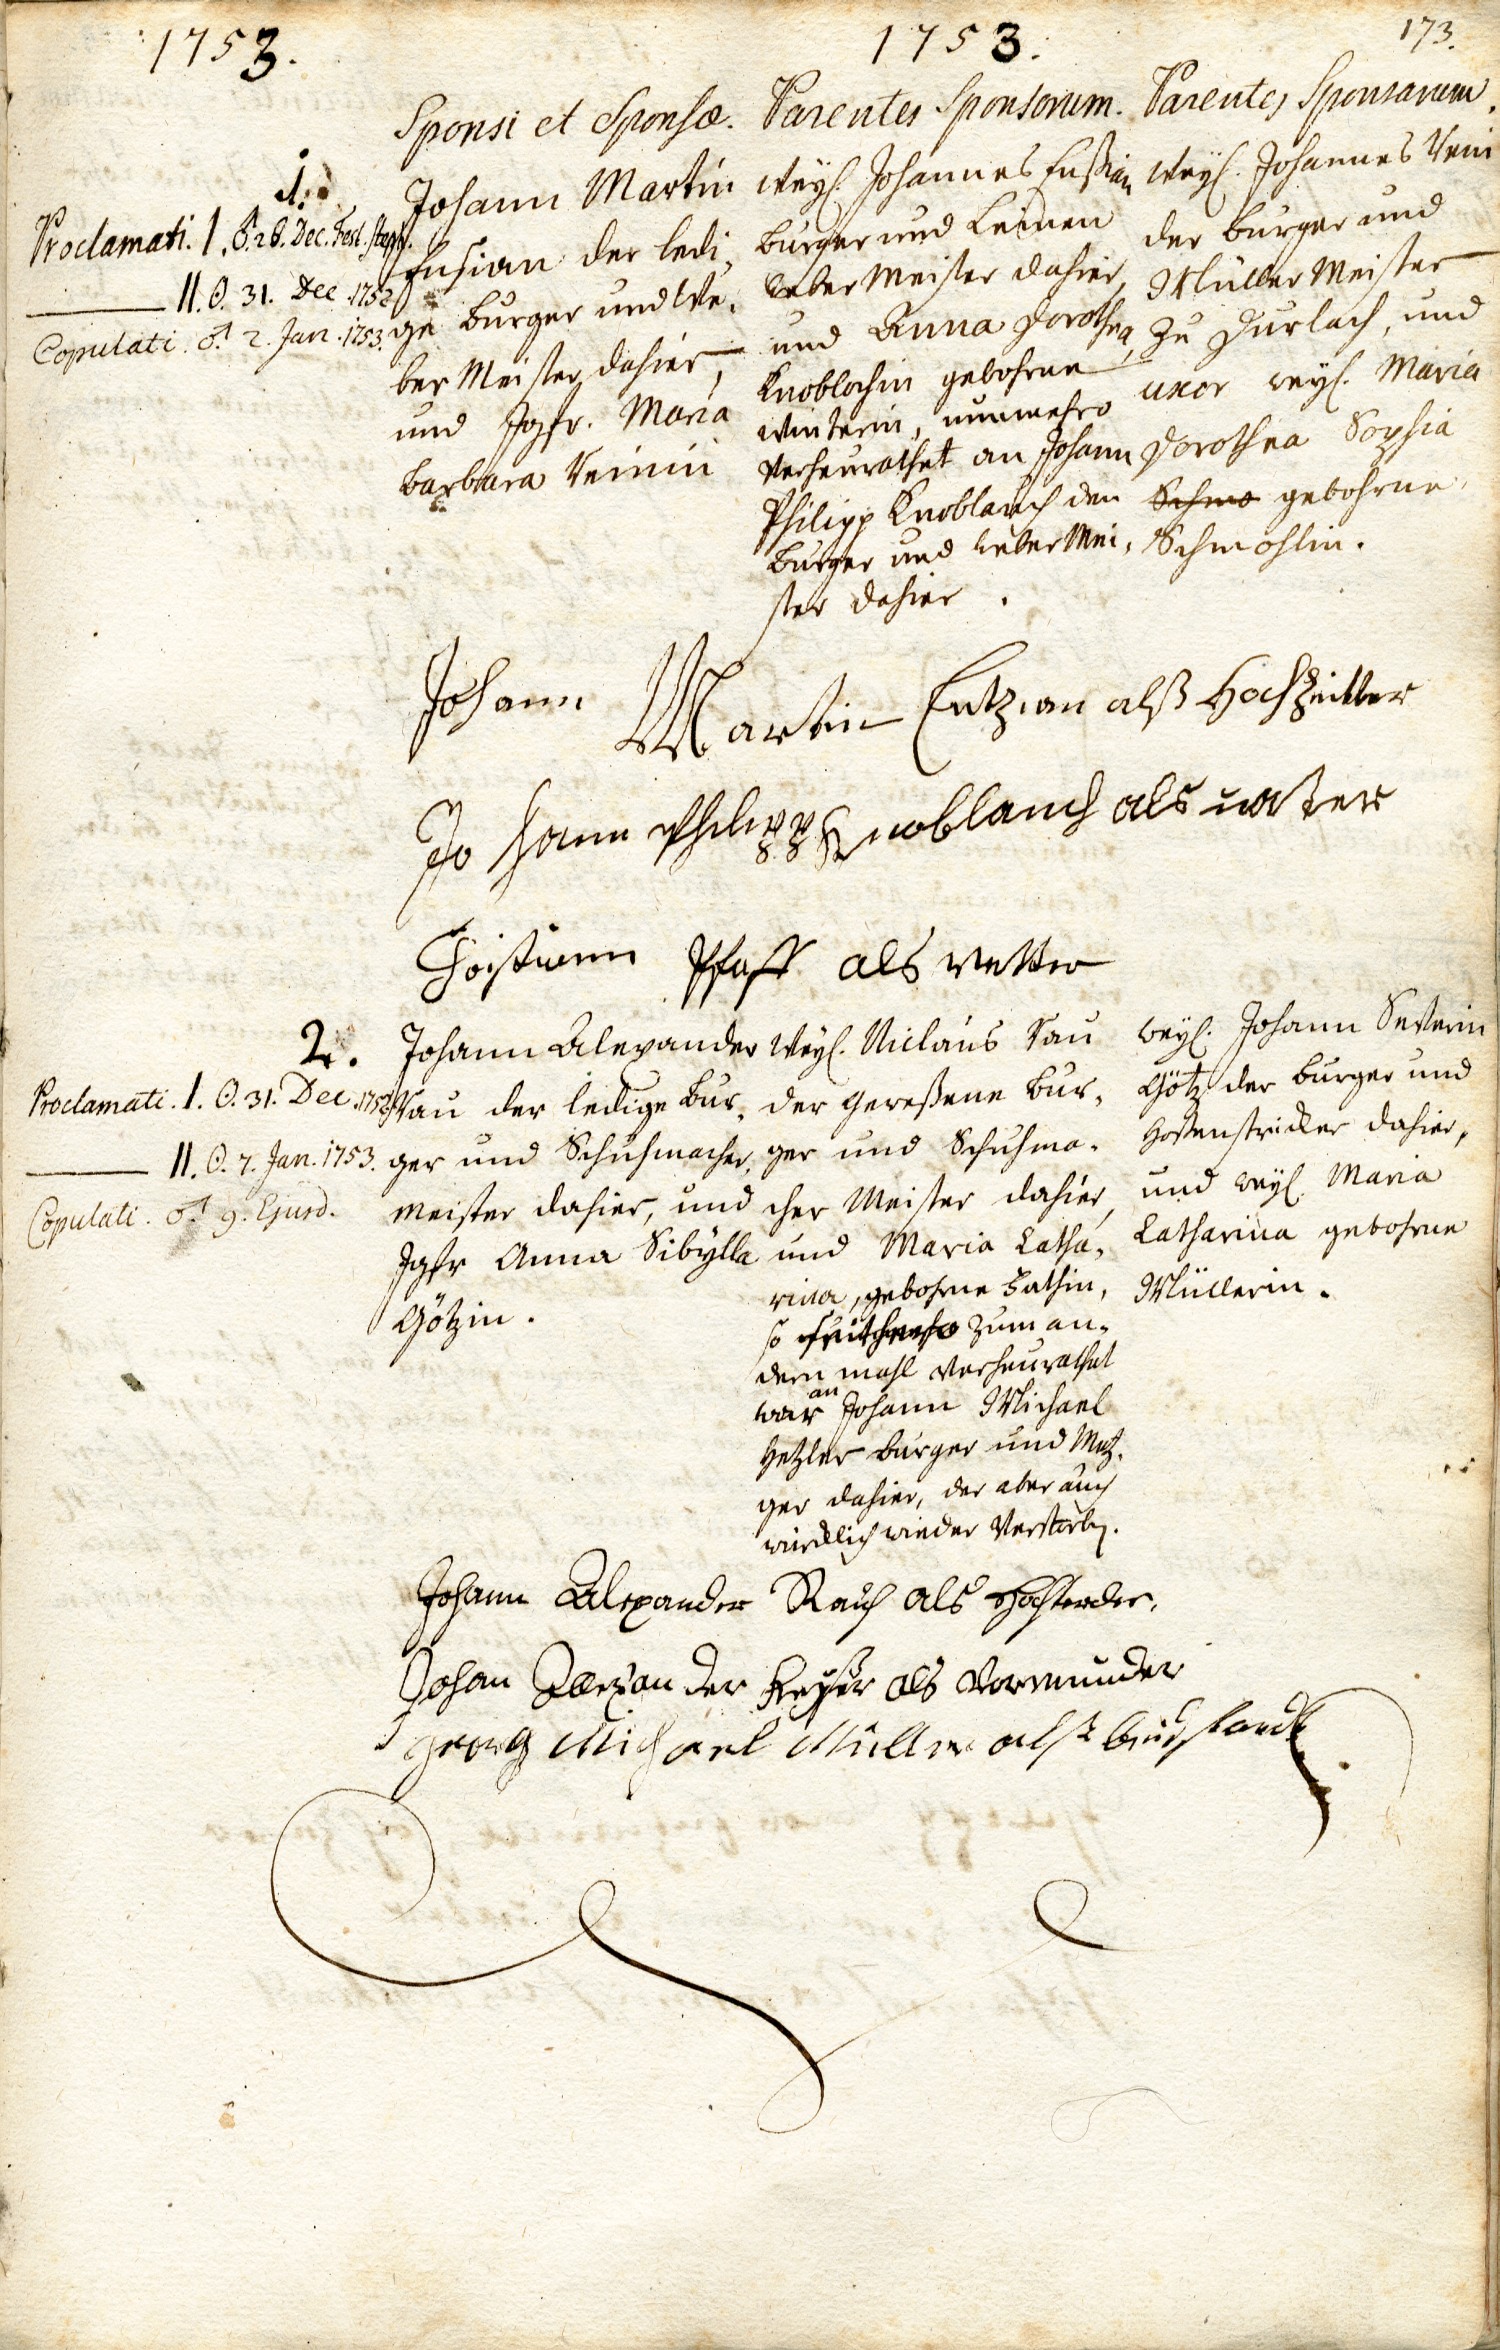 1753.
1753.
173.
Sponsi et Sponsæ.
Parentes Sponsorum.
Parentes Sponsarum.
1.
Proclamati. I. ♂. 26. Dec. Fest. Steph.
II. ☉. 31. Dec. 1752
Copulati. ♂. 2. Jan. 1753.
Johann Martin
Ensian der ledi,
ge burger und We,
ber Meister dahier,
und Jgfr. Maria
Barbara
weyl. Johannes Enßian
burger und Leinen
weber Meister dahier,
und Anna Dorothea,
Knoblochin gebohrne
Winterin, nunmehro
verheurathet an Johann
Philipp Knoblauch den
burger und weber Mei,
ster dahier.
weyl. Johannes
der burger und
Müller Meister
zu Durlach, und
uxor weyl. Maria
Dorothea Sophia
Schmo gebohrne
Schmohlin.
Johann Martin Entzian alß Hochzeitter
Johann Philipp Knoblauch als vatter
Christian Pfaff als vetter
2.
Proclamati. I. ☉. 31. Dec. 1752
II. ☉. 7. Jan. 1753.
Copulati. ♂. 9. Ejusd.
Johann Alexander
Rau der ledige bur,
ger und Schuhmacher,
meister dahier, und
Jgfr Anna Sibÿlla
Götzin.
weyl. Niclaus Rau
der geweßene bur,
ger und Schuhma,
cher Meister dahier,
und Maria Catha,
rina, gebohrne
so zum an,
dern mahl verheurathet
war an Johann Michael
Hetzler burger und Metz,
ger dahier, der aber auch
würcklich wieder verstorben.
weyl. Johann Severin
Götz der burger und
Hoßenstricker dahier,
und weyl. Maria
Catharina gebohrne
Müllerin.
Johann Alexander Rauh als
Johan Allexander Keyser als Vormunder
georg Michael Müller alß beystandt